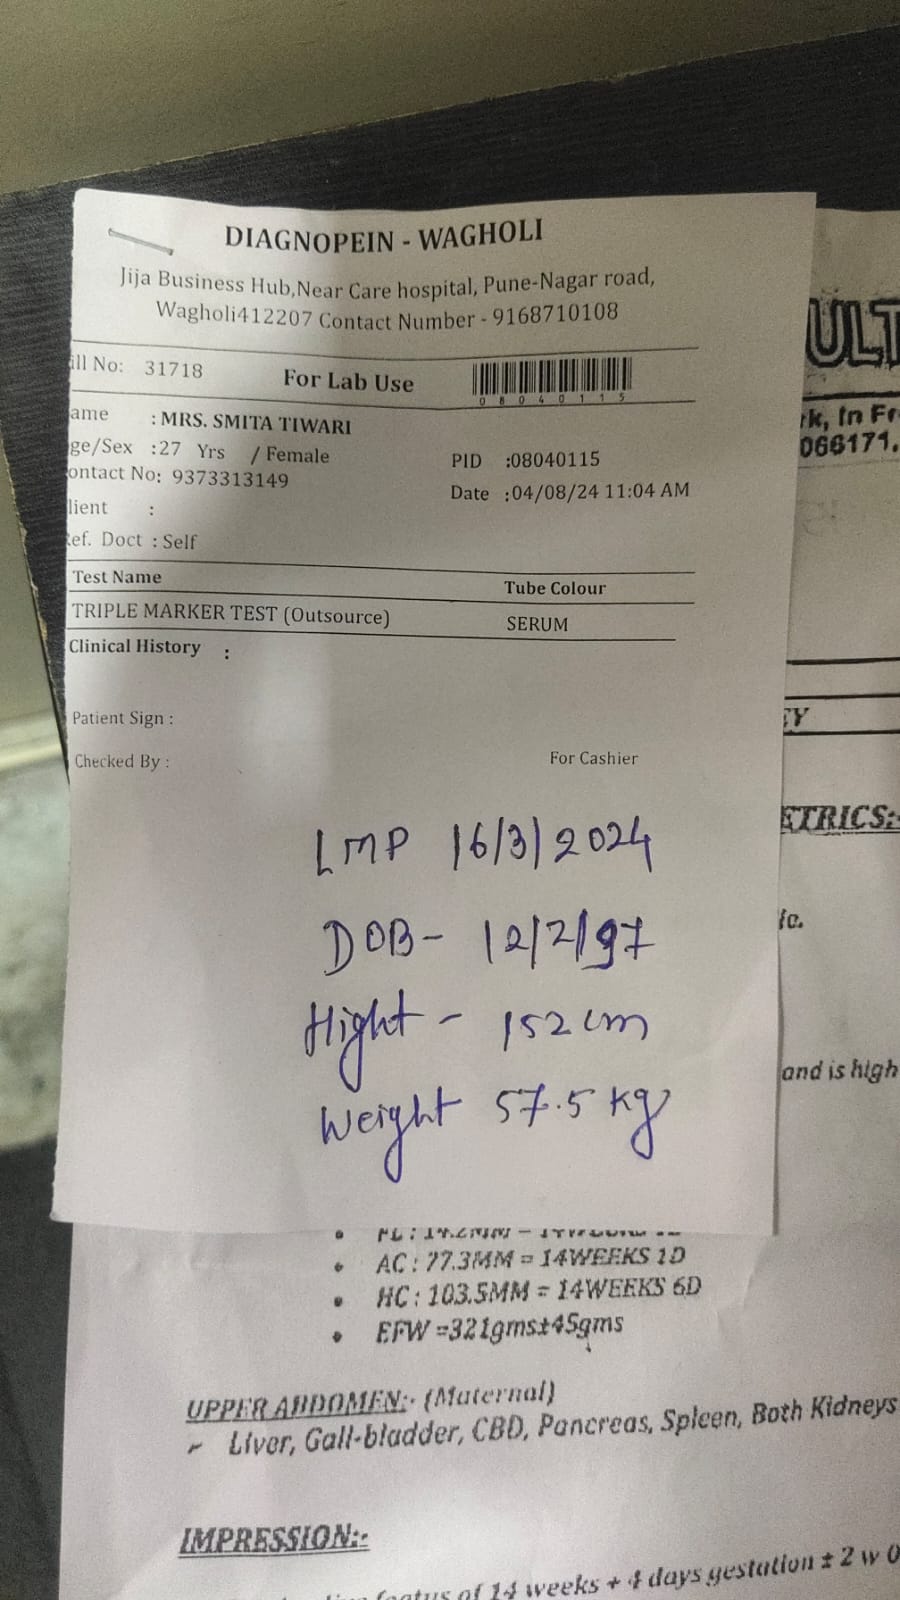 DIAGNOPEIN - WAGHOLI
Jija Business Hub,Near Care hospital, Pune-Nagar road,
Wagholi412207 Contact Number - 9168710108
ill No: 31718 For Lab Use
08040115
ame : MRS. SMITA TIWARI
ge/Sex :27 Yrs / Female
ontact No: 9373313149
PID :08040115
lient :
Date :04/08/24 11:04 AM
ef. Doct : Self
Test Name Tube Colour
TRIPLE MARKER TEST (Outsource) SERUM
Clinical History :
Patient Sign :
Checked By : For Cashier
LMP 16/3/2024
DOB- 12/2/97
Hight - 152 cm
Weight 57.5 kg
ULT
rk, In Fr
066171.
EY
ETRICS:-
ic.
and is high
AC : 77.3MM = 14WEEKS 1D
HC : 103.5MM = 14WEEKS 6D
EFW =321gms±45gms
UPPER ABDOMEN:- (Maternal)
Liver, Gall-bladder, CBD, Pancreas, Spleen, Both Kidneys
IMPRESSION:-
of 14 weeks + 4 days gestation ± 2 w 0